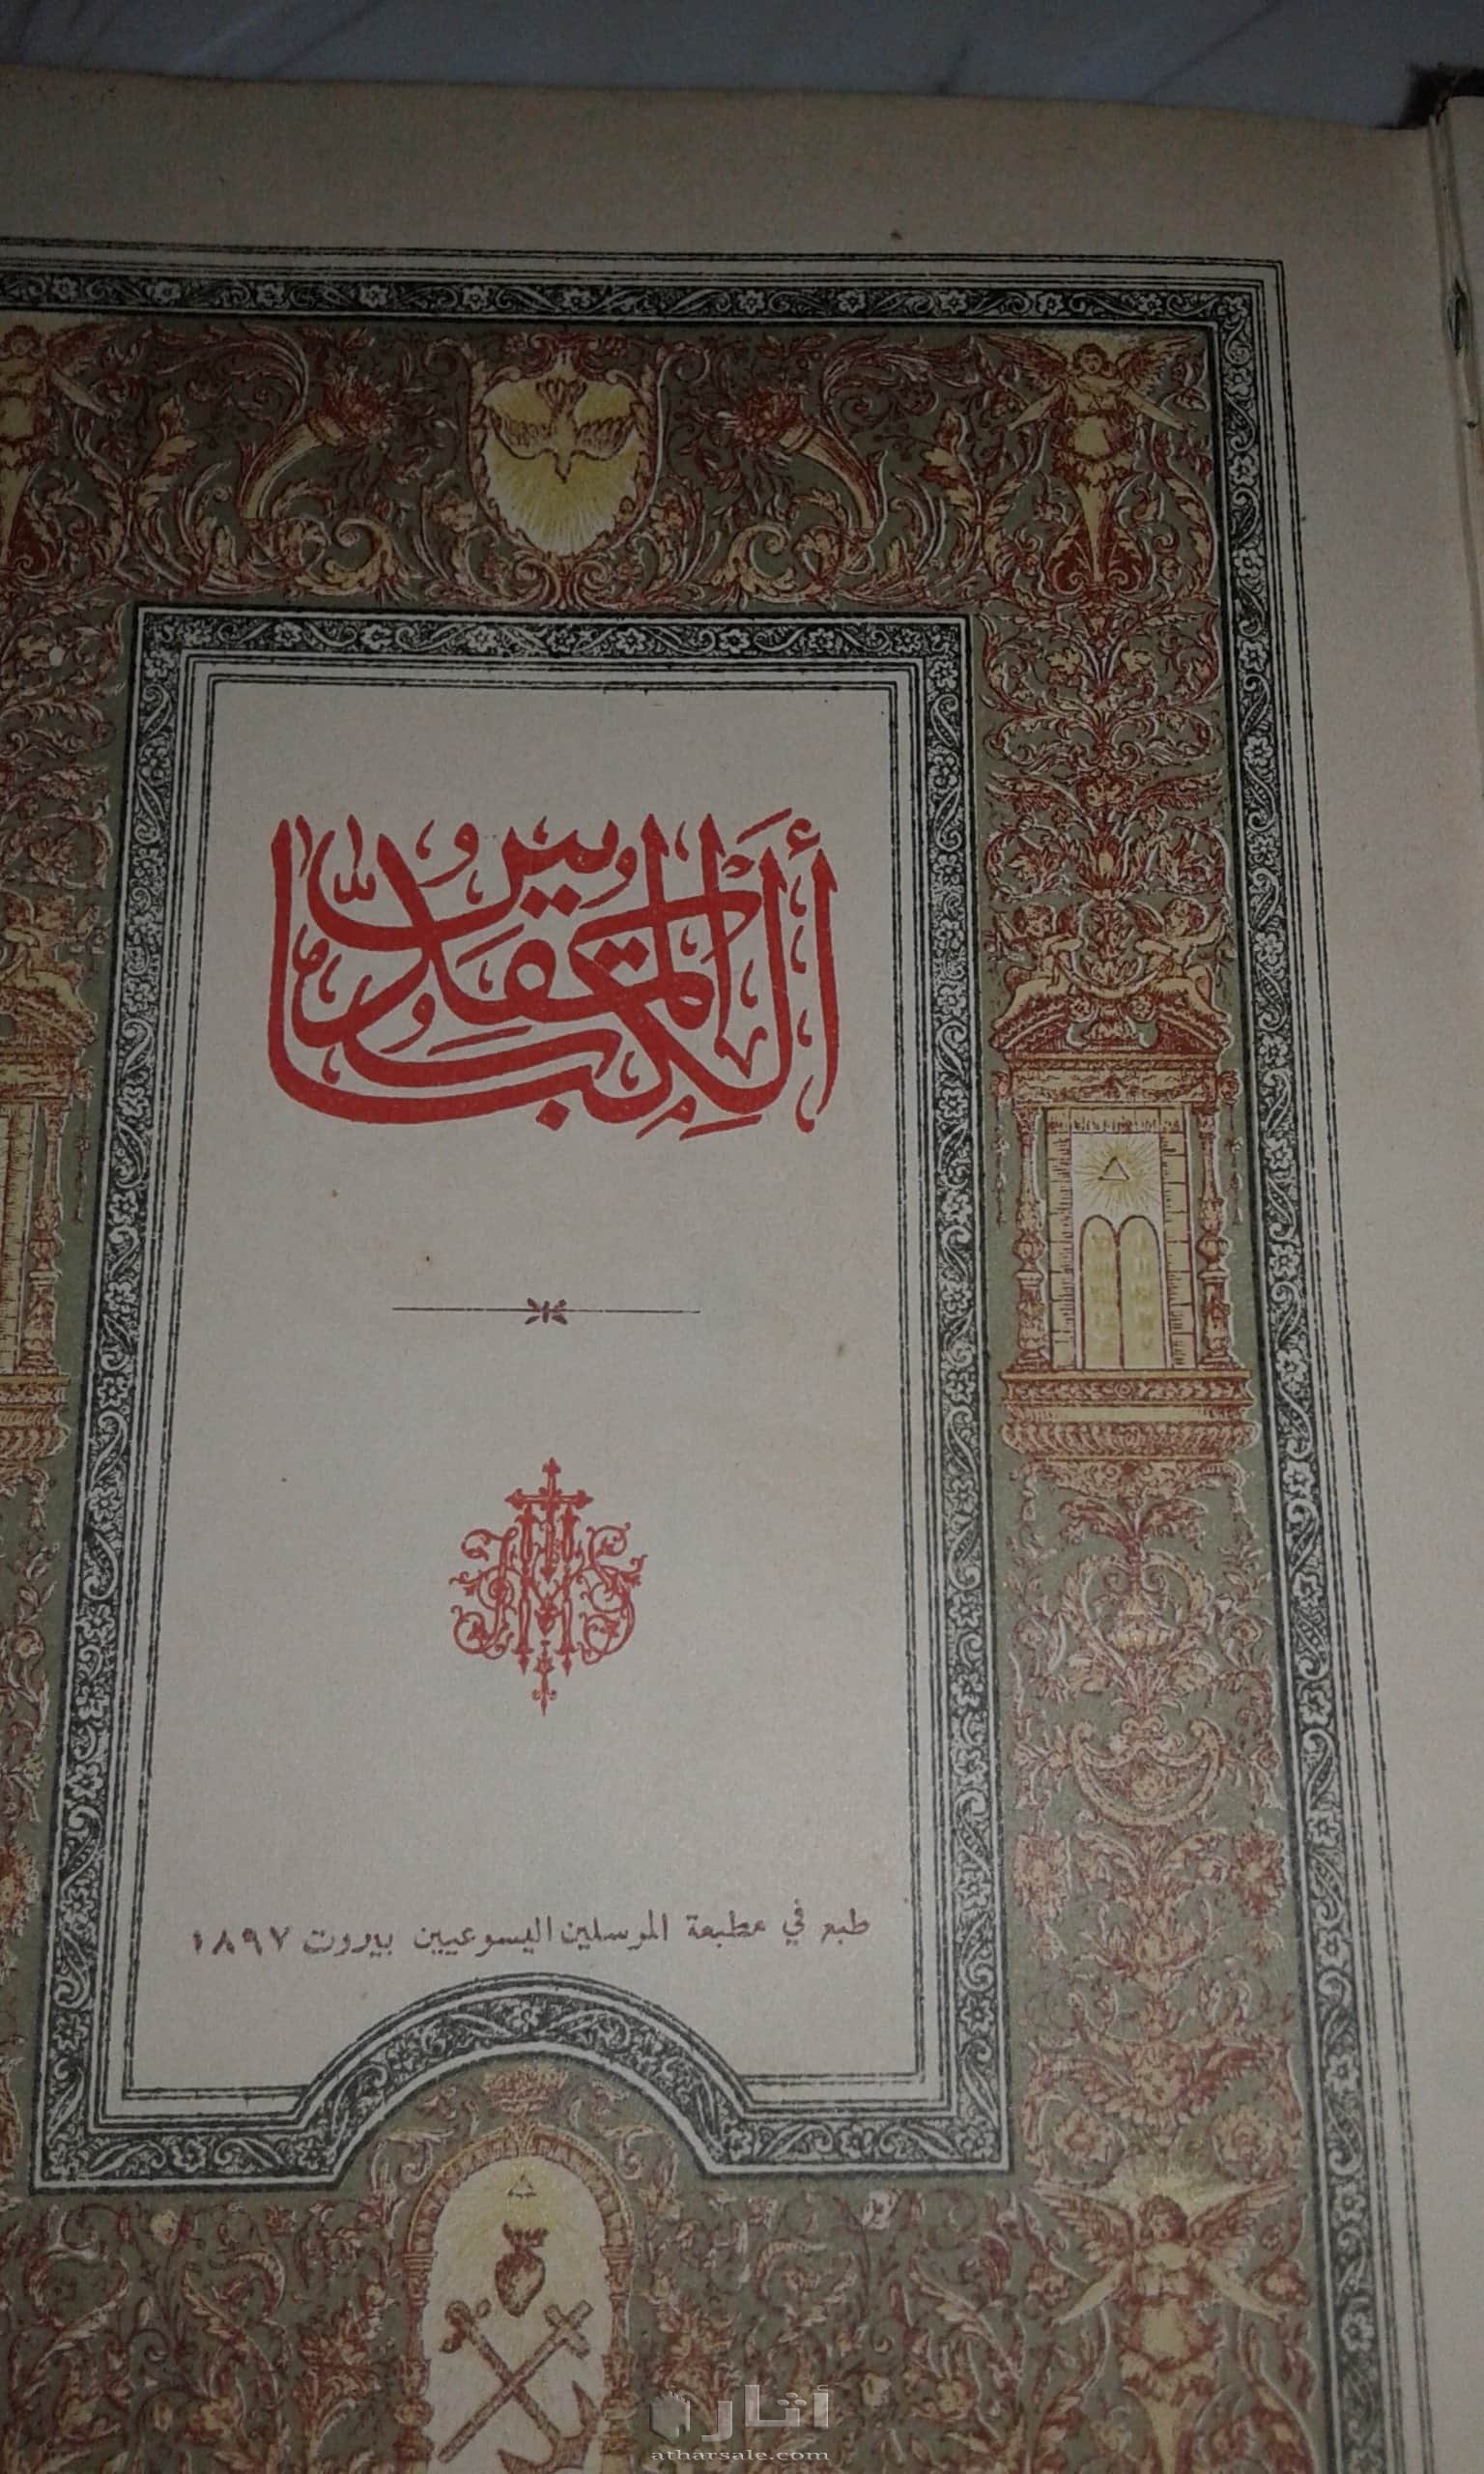 ألكتاب المقدس
IHS
طبع في مطبعة المرسلين اليسوعيين بيروت ١٨٩٧
أثار
atharsale.com